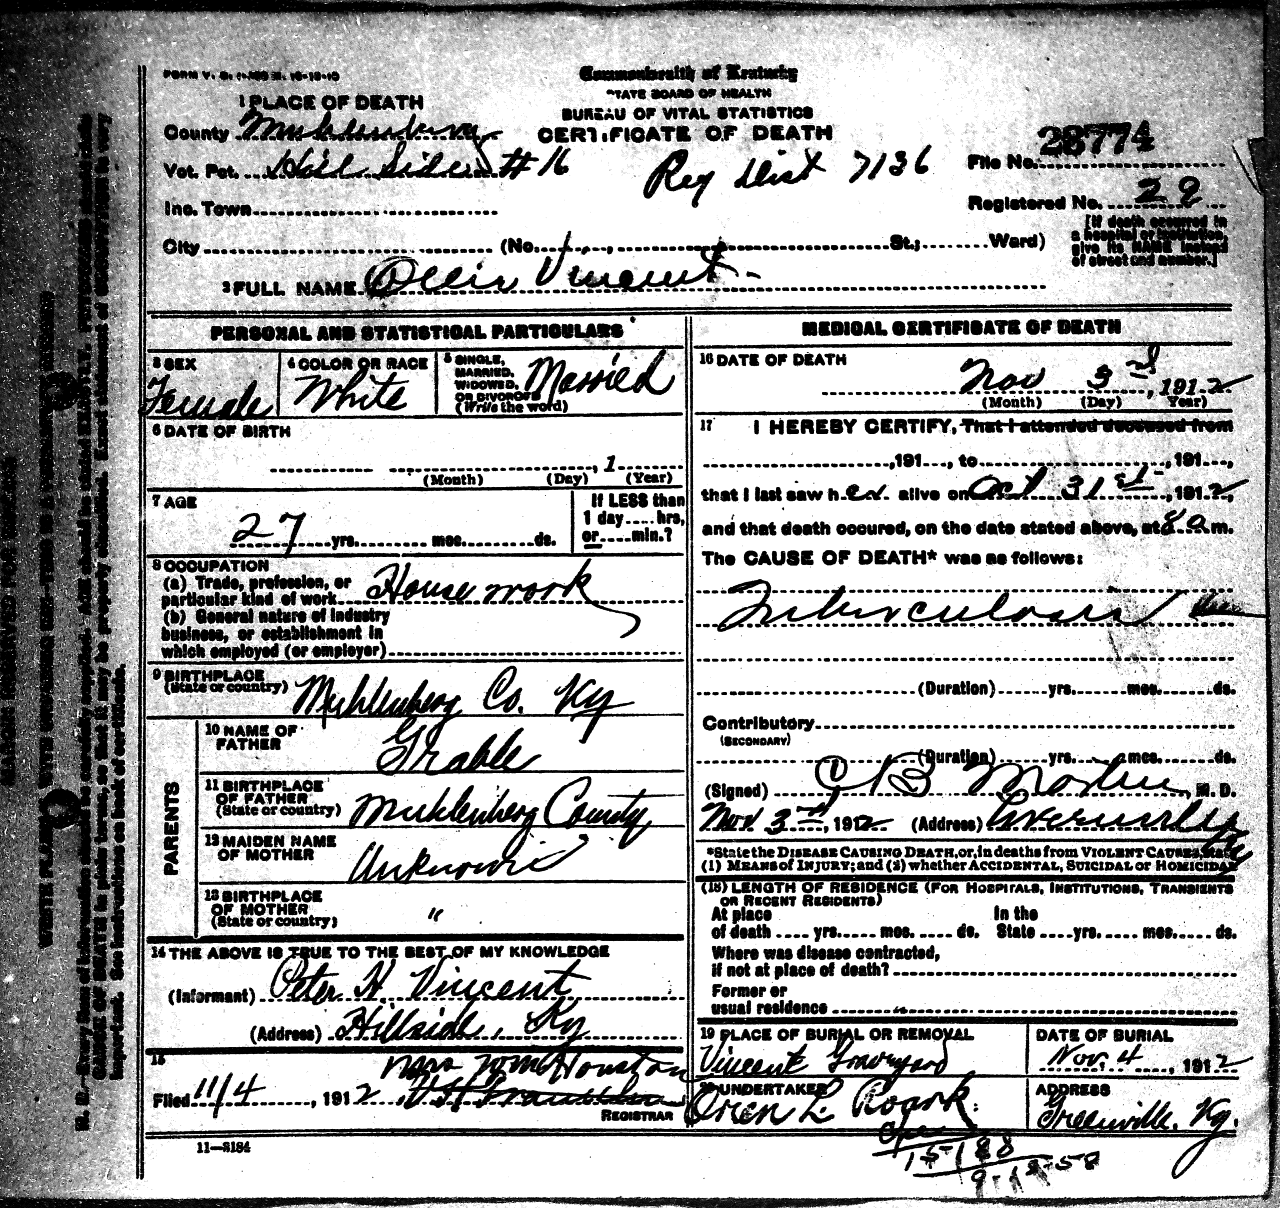 FORM V. S.
Commonwealth of Kentucky
STATE BOARD OF HEALTH
BUREAU OF VITAL STATISTICS
CERTIFICATE OF DEATH
1 PLACE OF DEATH
County Muhlenberg
Vot. Pct. Hill Side #16
Reg Dist 7136
File No. 28774
Registered No. 29
Inc. Town
City (No. St.; Ward)
[If death occurred in
a hospital or institution,
give its NAME instead
of street and number.]
2 FULL NAME Ollie Vincent
PERSONAL AND STATISTICAL PARTICULARS
3 SEX
Female
4 COLOR OR RACE
White
5 SINGLE,
MARRIED,
WIDOWED,
OR DIVORCED
(Write the word)
Married
6 DATE OF BIRTH
, 1
(Month) (Day) (Year)
7 AGE
27 yrs. mos. ds.
If LESS than
1 day .... hrs,
or .... min.?
8 OCCUPATION
(a) Trade, profession, or
particular kind of work House work
(b) General nature of industry
business, or establishment in
which employed (or employer)
9 BIRTHPLACE
(State or country) Muhlenberg Co. Ky
PARENTS
10 NAME OF
FATHER Grable
11 BIRTHPLACE
OF FATHER
(State or country) Muhlenberg County
12 MAIDEN NAME
OF MOTHER Unknown
13 BIRTHPLACE
OF MOTHER
(State or country) "
14 THE ABOVE IS TRUE TO THE BEST OF MY KNOWLEDGE
(Informant) Peter H. Vincent
(Address) Hillside, Ky
15
Mrs Wm Houston
Filed 11/4, 1912
REGISTRAR
11—3184
MEDICAL CERTIFICATE OF DEATH
16 DATE OF DEATH
Nov 3rd, 1912
(Month) (Day) (Year)
17 I HEREBY CERTIFY, That I attended deceased from
, 191 , to , 191 ,
that I last saw her alive on Oct 31st, 1912,
and that death occured, on the date stated above, at 8 a m.
The CAUSE OF DEATH* was as follows:
Tuberculosis
(Duration) yrs. mos. ds.
Contributory
(SECONDARY)
(Duration) yrs. mos. ds.
(Signed) C B Martin, M. D.
Nov 3rd, 1912 (Address) Greenville Ky
*State the DISEASE CAUSING DEATH, or, in deaths from VIOLENT CAUSES, state
(1) MEANS of INJURY; and (2) whether ACCIDENTAL, SUICIDAL or HOMICIDAL
(18) LENGTH OF RESIDENCE (FOR HOSPITALS, INSTITUTIONS, TRANSIENTS
OR RECENT RESIDENTS)
At place In the
of death .... yrs. mos. ds. State .... yrs. mos. ds.
Where was disease contracted,
if not at place of death?
Former or
usual residence
19 PLACE OF BURIAL OR REMOVAL
Vincent Graveyard
DATE OF BURIAL
Nov. 4, 1912
20 UNDERTAKER
Oren L. Roark
ADDRESS
Greenville, Ky.
15-188
9-18-58
MARGIN RESERVED FOR BINDING
WRITE PLAINLY, WITH UNFADING INK—THIS IS A PERMANENT RECORD
N. B.—Every item of information should be carefully supplied. AGE should be stated EXACTLY. PHYSICIANS should state
CAUSE OF DEATH in plain terms, so that it may be properly classified. Exact statement of OCCUPATION is very
important. See instructions on back of certificate.